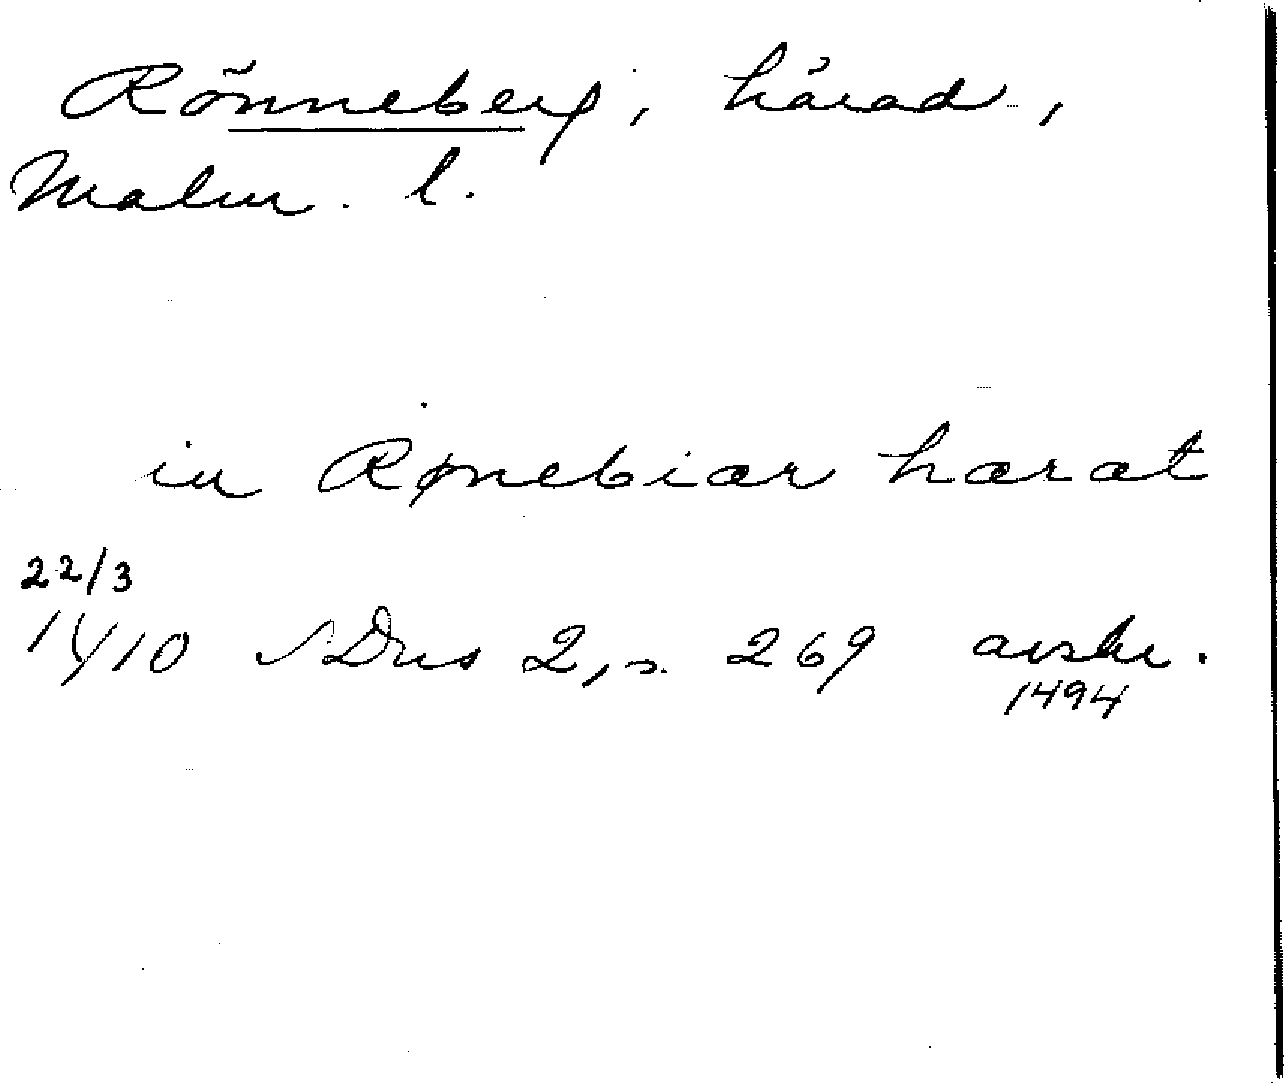 Rönneberg, härad,
Malm. l.
in Rønebiær hærat
22/3
1410 SDns 2, s. 269 avskr.
1494